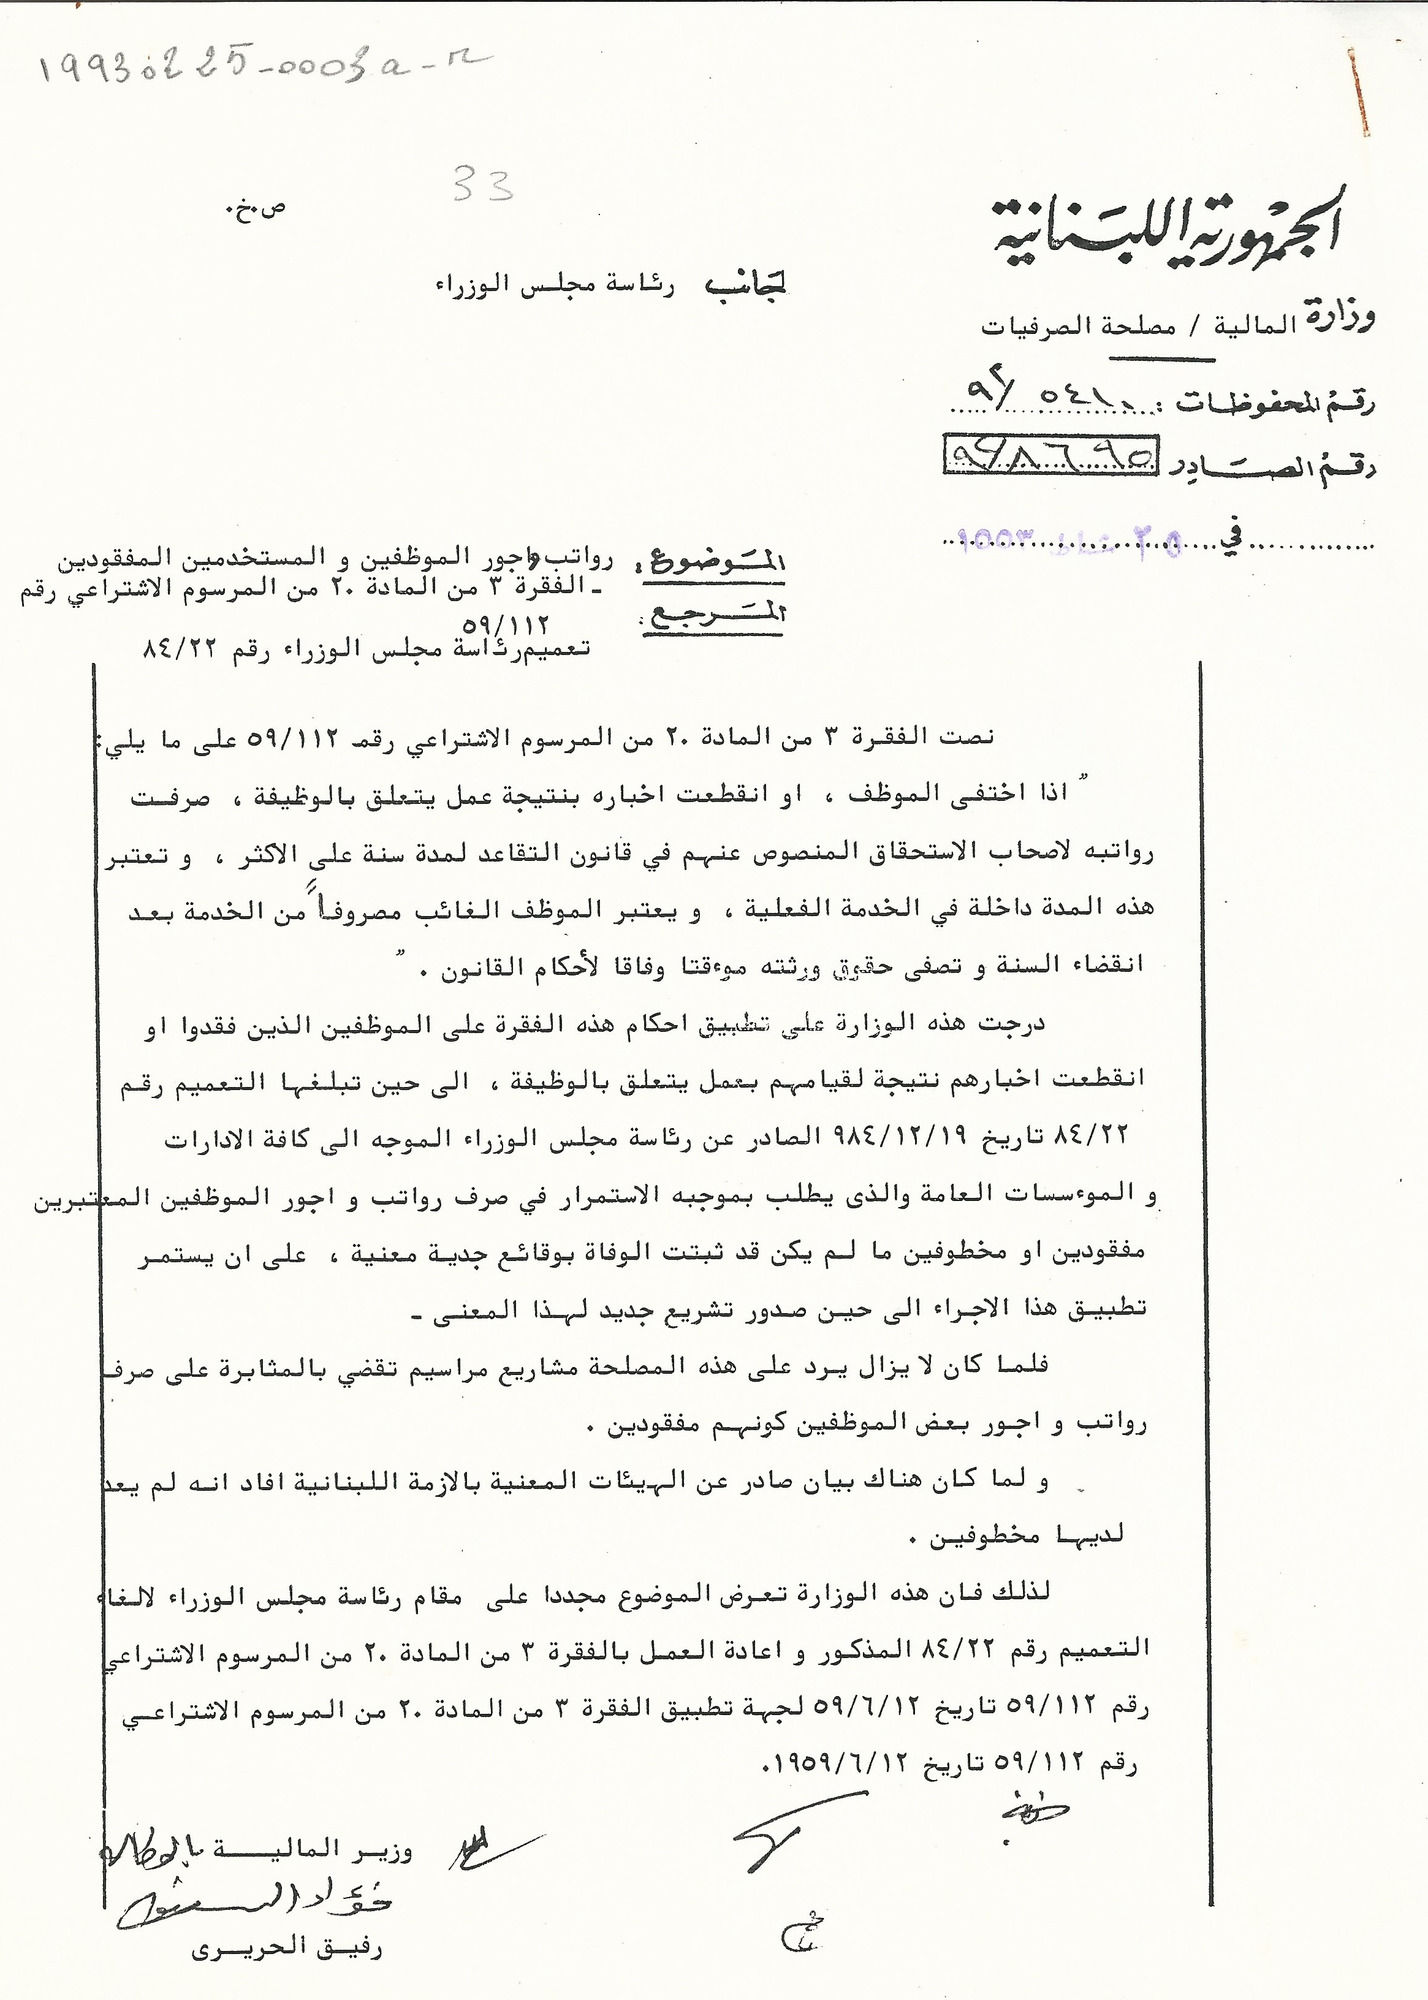 19930225-0003a-r
33
ص.خ.
الجمهورية اللبنانية
لجانب رئاسة مجلس الوزراء
وزارة المالية / مصلحة الصرفيات
رقم المحفوظات :
رقم الصادر
في ٢٥ شباط ١٩٩٣
الموضوع : رواتب واجور الموظفين و المستخدمين المفقودين
المرجع : ـ الفقرة ٣ من المادة ٢٠ من المرسوم الاشتراعي رقم
٥٩/١١٢
تعميم رئاسة مجلس الوزراء رقم ٨٤/٢٢
نصت الفقرة ٣ من المادة ٢٠ من المرسوم الاشتراعي رقم ٥٩/١١٢ على ما يلي:
" اذا اختفى الموظف ، او انقطعت اخباره بنتيجة عمل يتعلق بالوظيفة ، صرفت
رواتبه لاصحاب الاستحقاق المنصوص عنهم في قانون التقاعد لمدة سنة على الاكثر ، و تعتبر
هذه المدة داخلة في الخدمة الفعلية ، و يعتبر الموظف الغائب مصروفاً من الخدمة بعد
انقضاء السنة و تصفى حقوق ورثته موءقتا وفاقا لأحكام القانون . "
درجت هذه الوزارة على تطبيق احكام هذه الفقرة على الموظفين الذين فقدوا او
انقطعت اخبارهم نتيجة لقيامهم بعمل يتعلق بالوظيفة ، الى حين تبلغها التعميم رقم
٨٤/٢٢ تاريخ ٩٨٤/١٢/١٩ الصادر عن رئاسة مجلس الوزراء الموجه الى كافة الادارات
و الموءسسات العامة والذى يطلب بموجبه الاستمرار في صرف رواتب و اجور الموظفين المعتبرين
مفقودين او مخطوفين ما لم يكن قد ثبتت الوفاة بوقائع جدية معنية ، على ان يستمر
تطبيق هذا الاجراء الى حين صدور تشريع جديد لهذا المعنى ـ
فلما كان لا يزال يرد على هذه المصلحة مشاريع مراسيم تقضي بالمثابرة على صرف
رواتب و اجور بعض الموظفين كونهم مفقودين .
و لما كان هناك بيان صادر عن الهيئات المعنية بالازمة اللبنانية افاد انه لم يعد
لديها مخطوفين .
لذلك فان هذه الوزارة تعرض الموضوع مجددا على مقام رئاسة مجلس الوزراء لالغاء
التعميم رقم ٨٤/٢٢ المذكور و اعادة العمل بالفقرة ٣ من المادة ٢٠ من المرسوم الاشتراعي
رقم ٥٩/١١٢ تاريخ ٥٩/٦/١٢ لجهة تطبيق الفقرة ٣ من المادة ٢٠ من المرسوم الاشتراعي
رقم ٥٩/١١٢ تاريخ ١٩٥٩/٦/١٢.
وزير المالية بالوكالة
فؤاد السنيورة
رفيق الحريرى